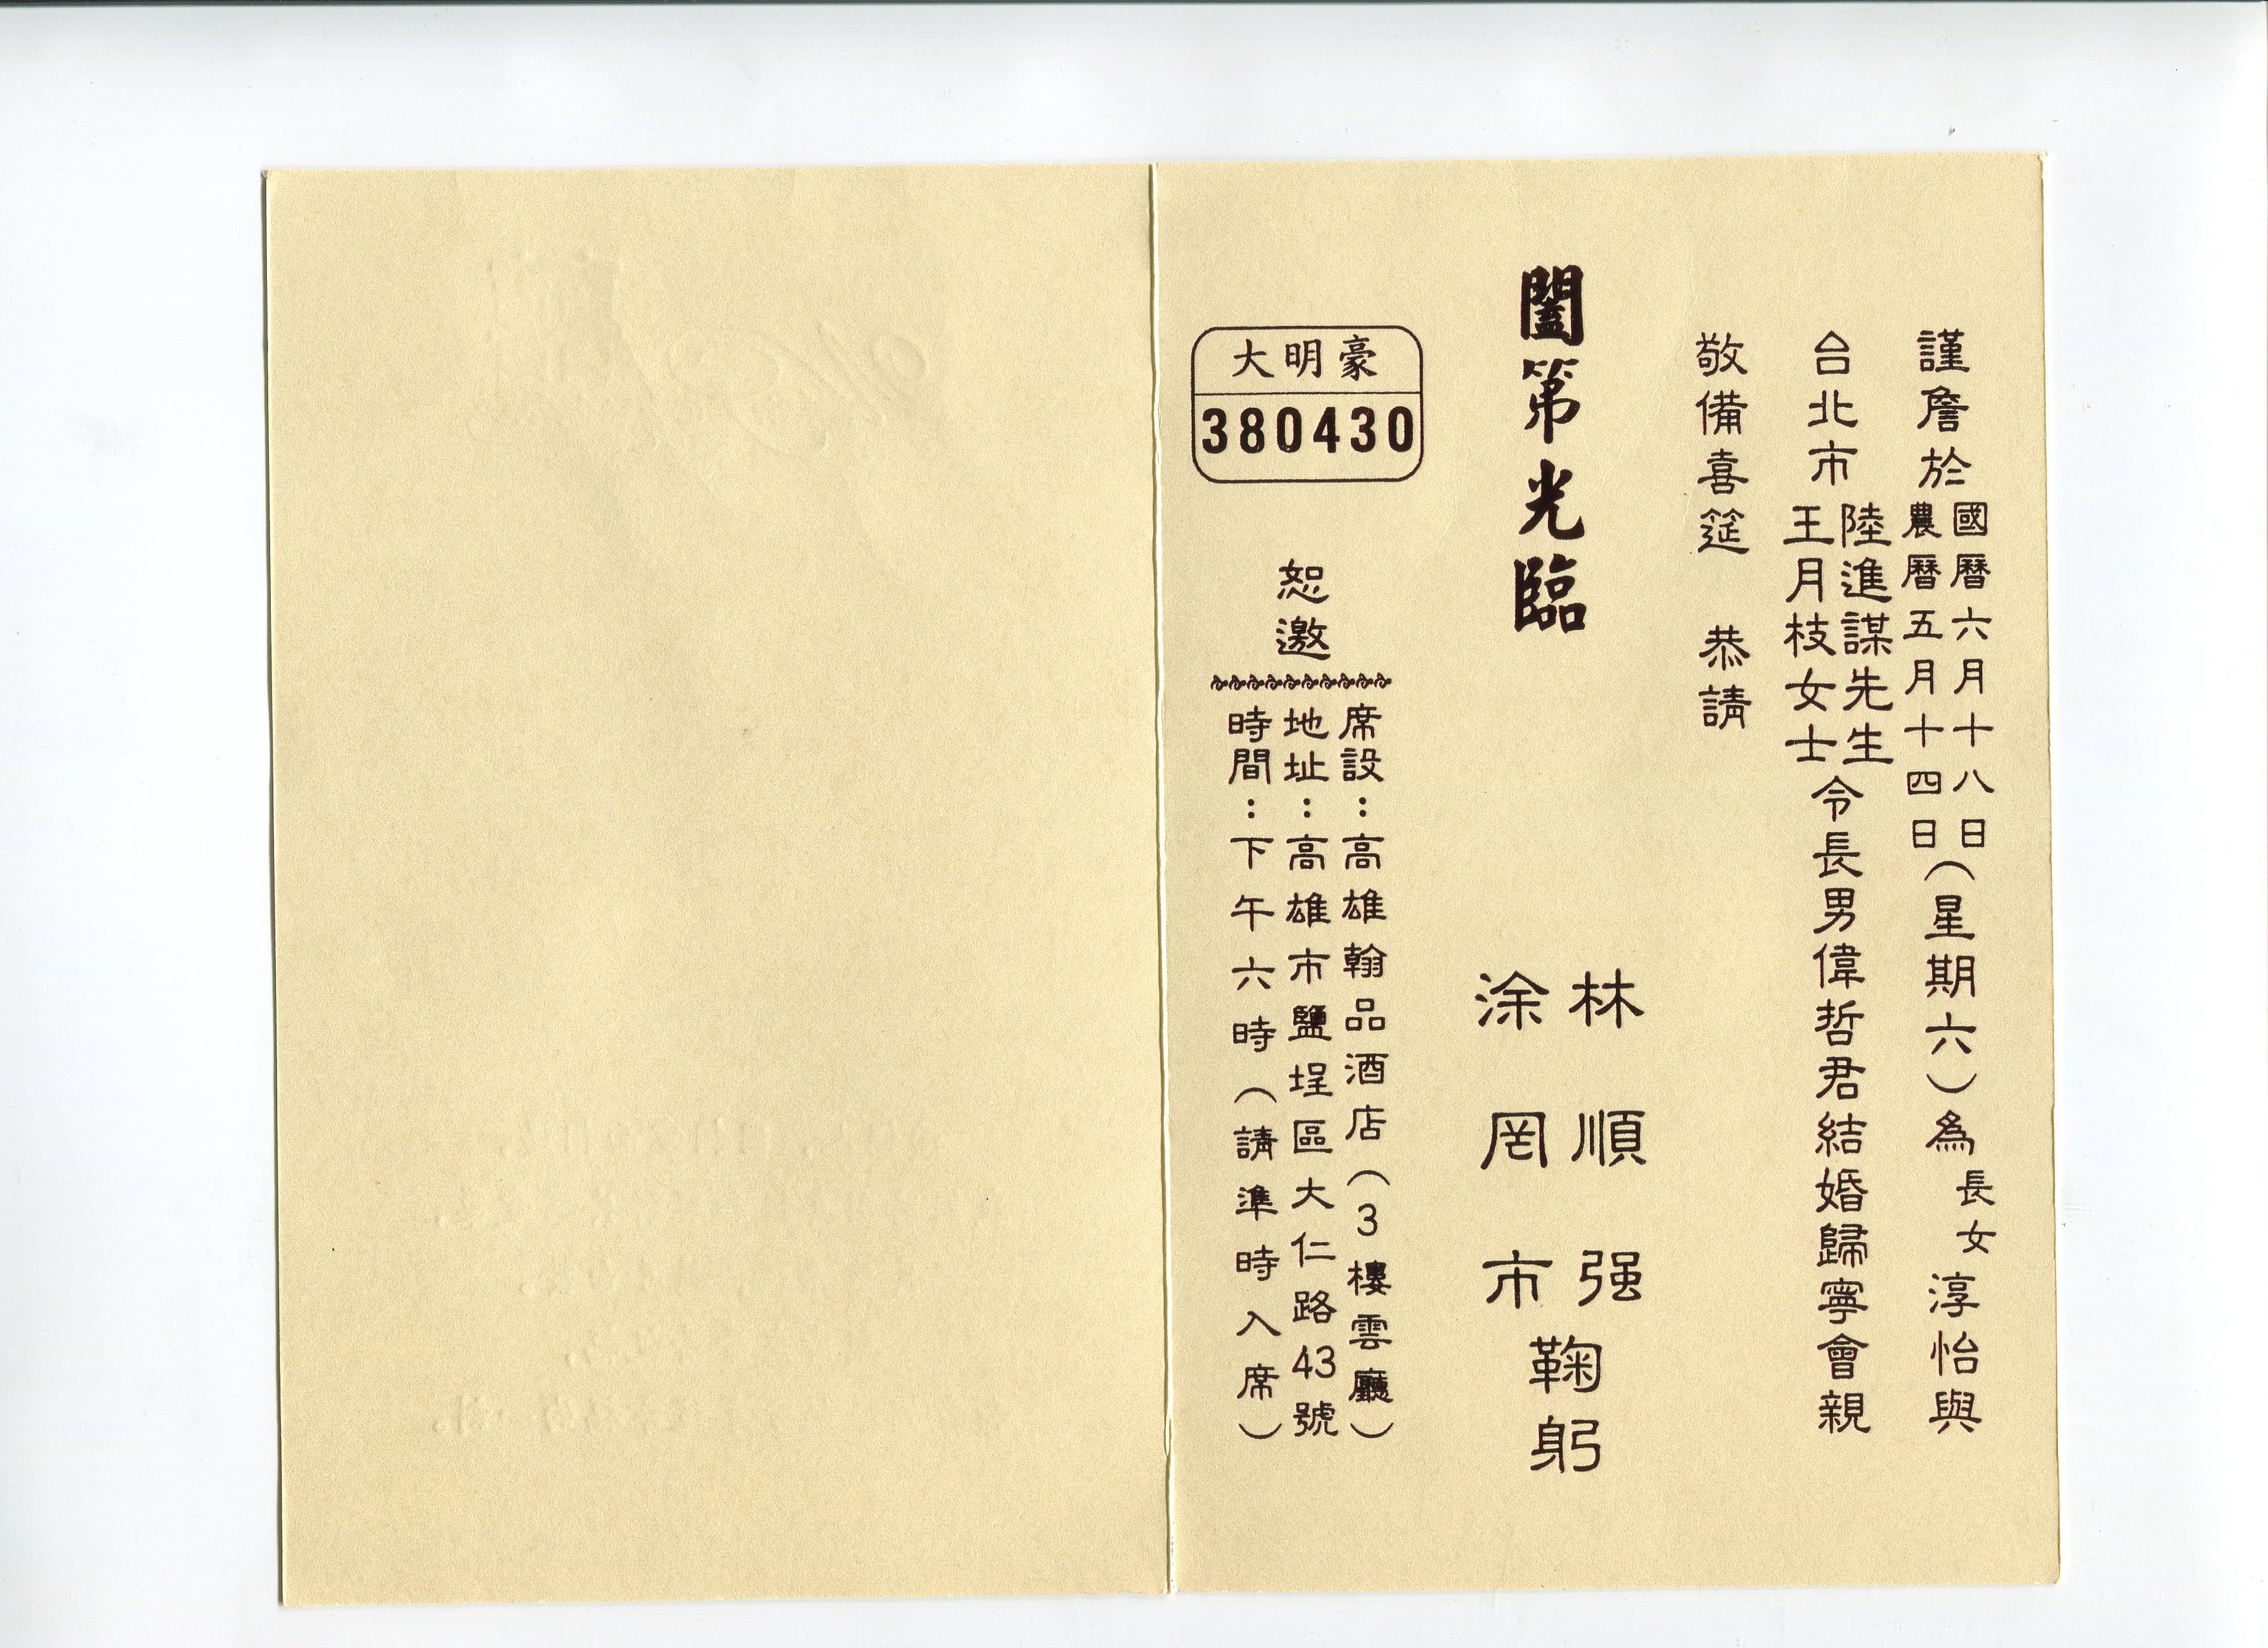 謹詹於國曆六月十八日農曆五月十四日(星期六)為長女淳怡與
台北市陸進謀先生王月枝女士令長男偉哲君結婚歸寧會親
敬備喜筵 恭請
闔第光臨
林順强
涂罔市
鞠躬
恕邀
席設：高雄翰品酒店(3樓雲廳)
地址：高雄市鹽埕區大仁路43號
時間：下午六時(請準時入席)
大明豪
380430